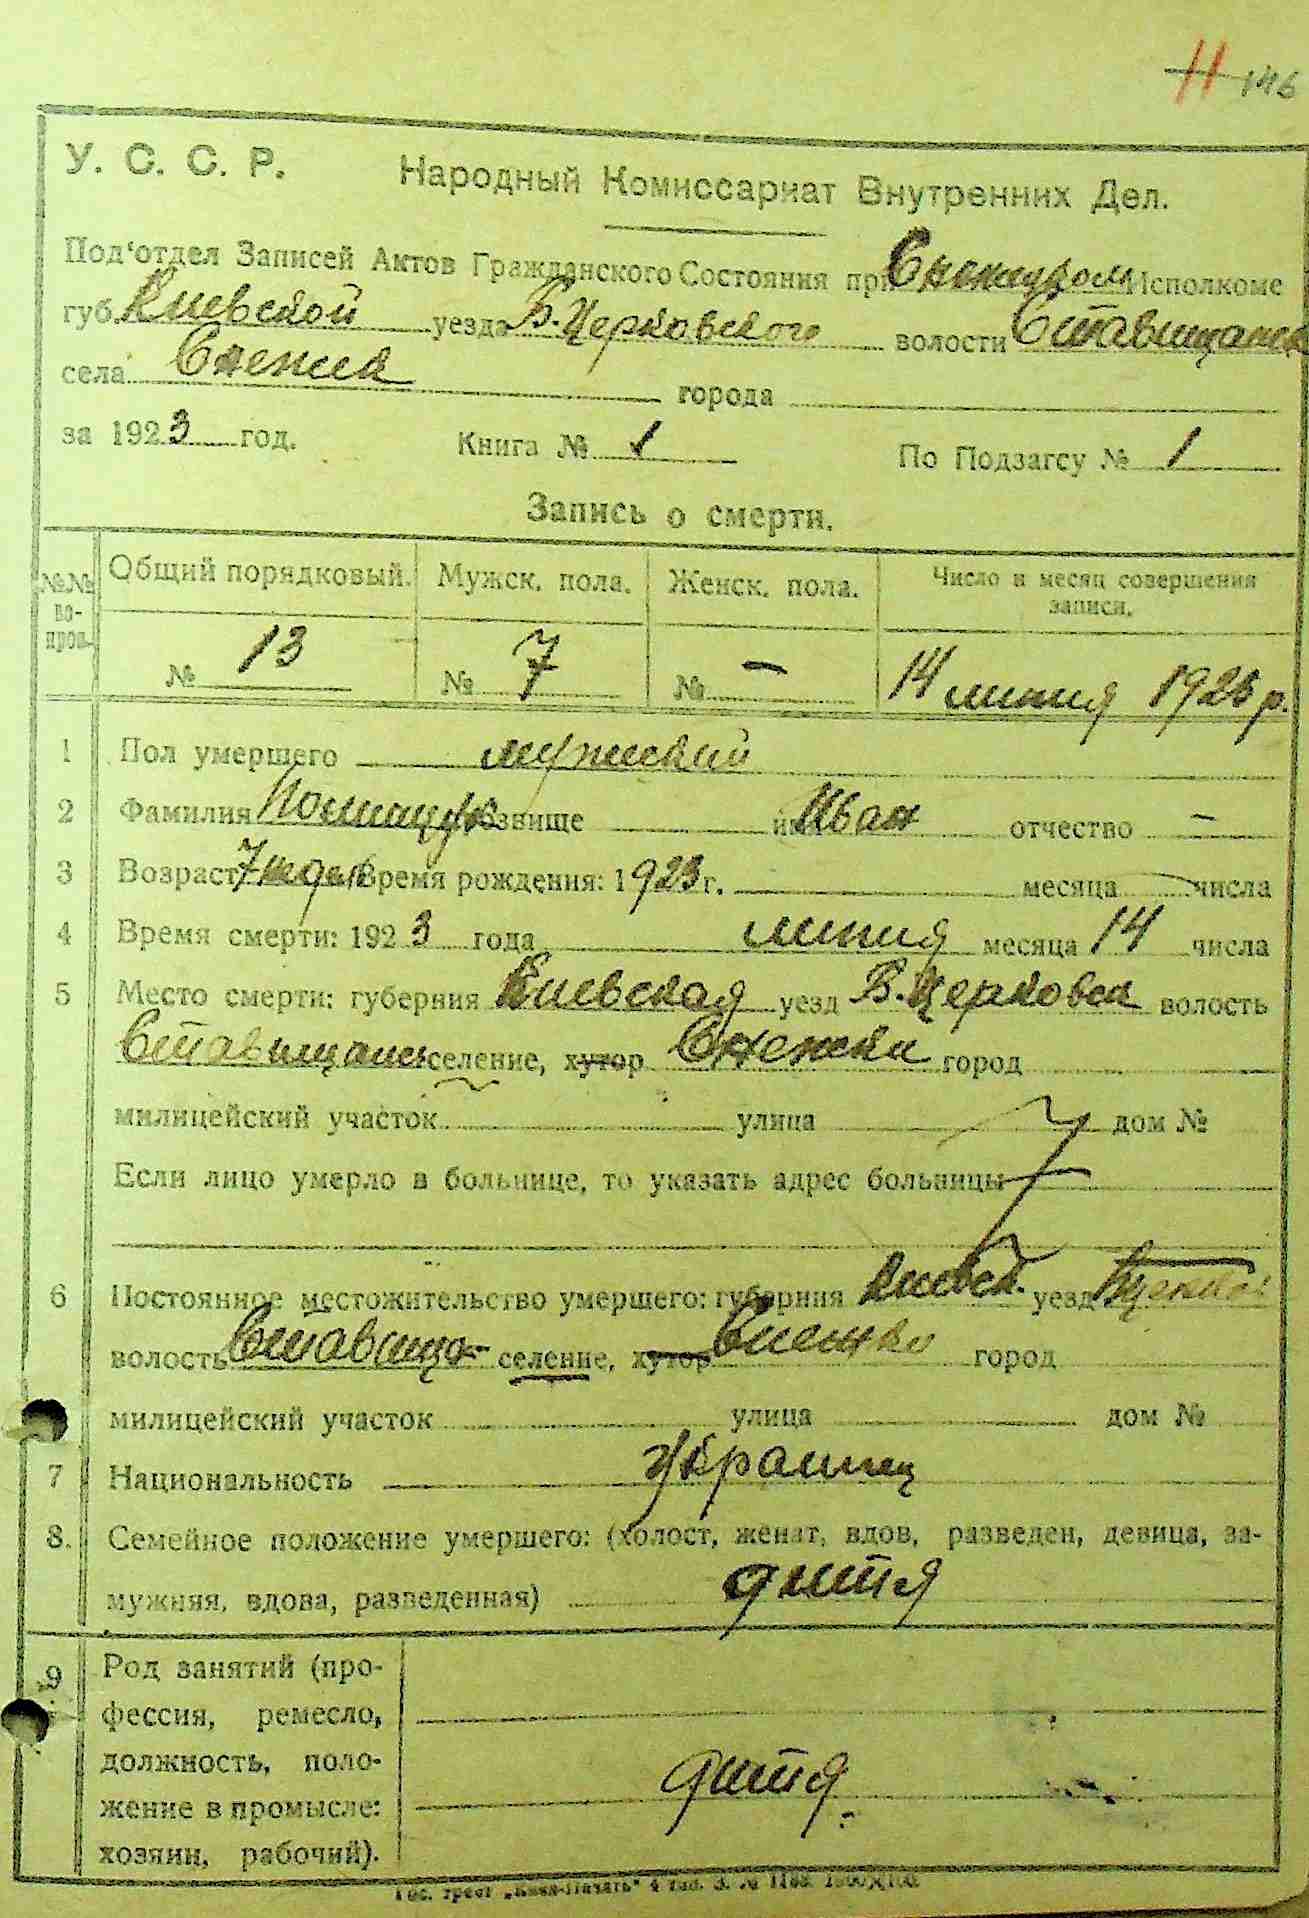 11 146
У. С. С. Р. Народный Комиссариат Внутренних Дел.
Под'отдел Записей Актов Гражданского Состояния при Исполкоме
губ. Киевской уезда Б.Церковского волости Ставищанск
села Снежки города
за 1923 год. Книга № 1 По Подзагсу № 1
Запись о смерти.
№№ во-проса Общий порядковый. Мужск. пола. Женск. пола. Число и месяц совершения записи.
№ 13 № 7 № — 14 липня 1923 р.
1 Пол умершего мужский
2 Фамилия прозвище имя Иван отчество —
3 Возраст 7 недел Время рождения: 1923 г. месяца числа
4 Время смерти: 1923 года липня месяца 14 числа
5 Место смерти: губерния Киевская уезд Б.Церковск волость
Ставищанс селение, хутор Снежки город
милицейский участок улица дом №
Если лицо умерло в больнице, то указать адрес больницы
6 Постоянное местожительство умершего: губерния Киевск. уезд
волость Ставища- селение, хутор Снежки город
милицейский участок улица дом №
7 Национальность украинец
8. Семейное положение умершего: (холост, женат, вдов, разведен, девица, за-
мужняя, вдова, разведенная) дитя
9 Род занятий (про-
фессия, ремесло,
должность, поло-
жение в промысле: дитя
хозяин, рабочий).
Гос. трест „Киев-Печать" 4 тип. З. №